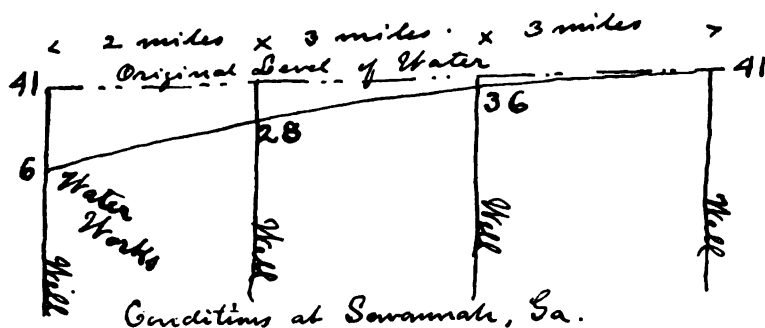 < 2 miles x 3 miles. x 3 miles >
Original Level of Water
41
41
36
28
6
Water
Works
Well
Well
Well
Well
Conditions at Savannah, Ga.